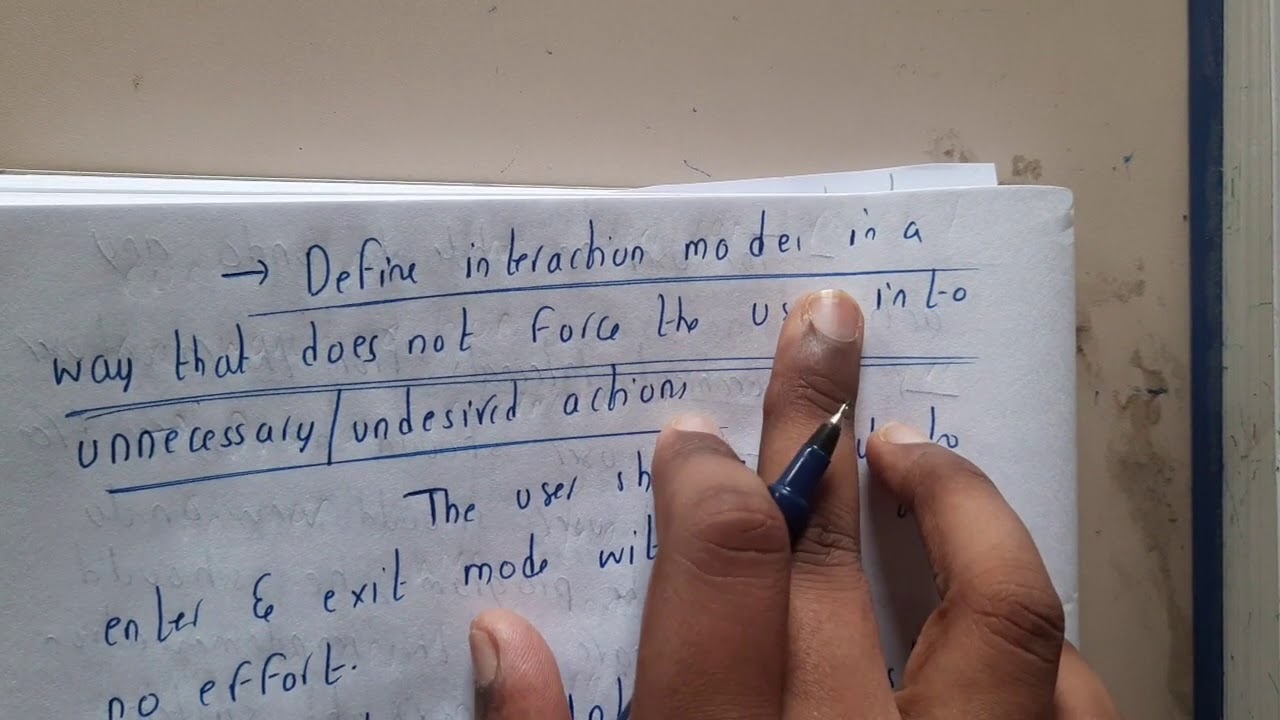 → Define interaction model in a
way that does not force the into
unnecessary/undesired actions
The user
enter & exit mode
no effort.